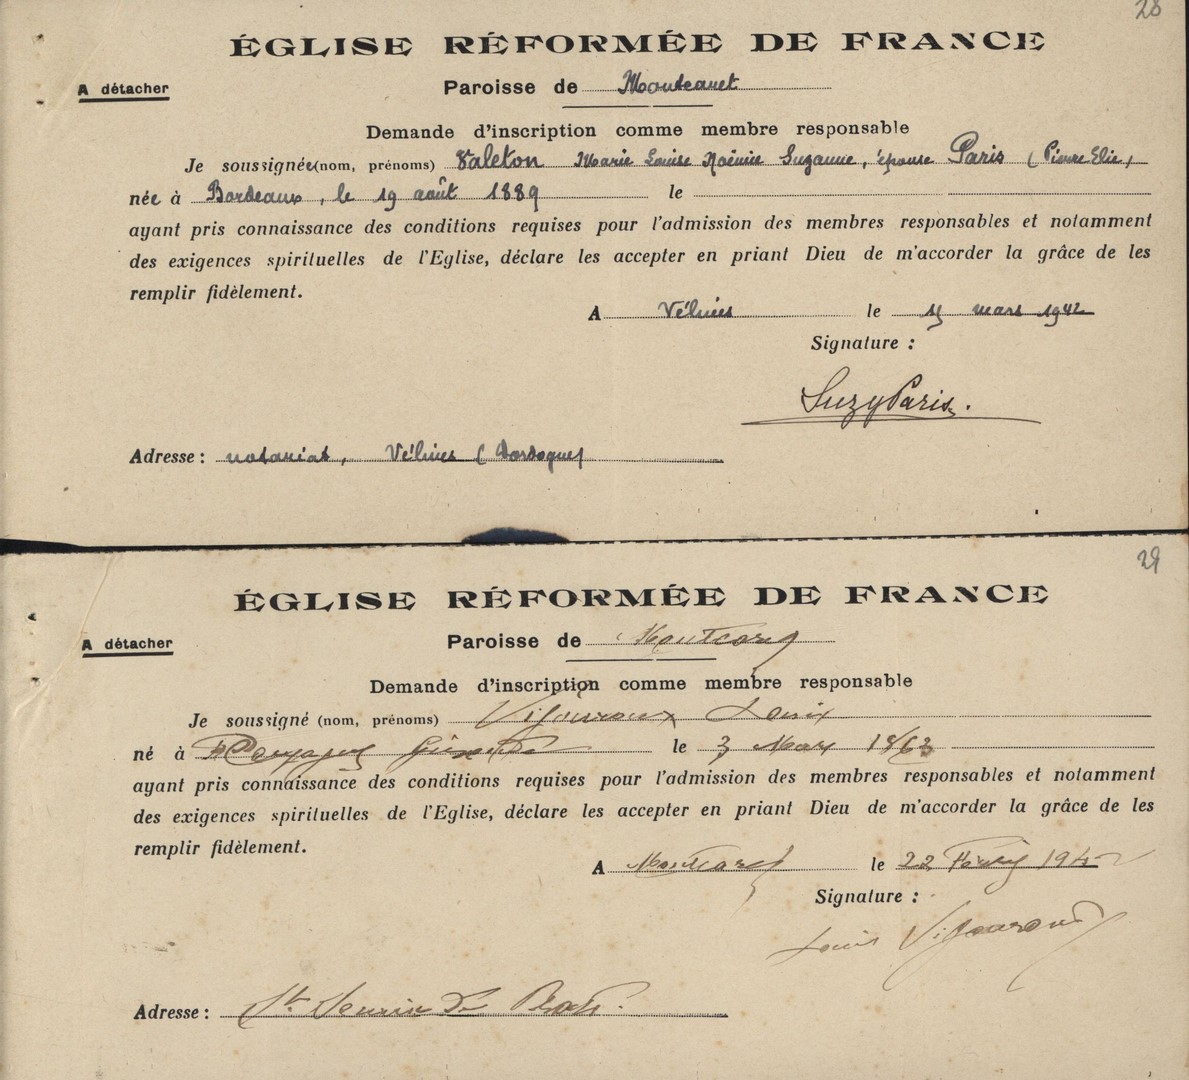 28
ÉGLISE RÉFORMÉE DE FRANCE
A détacher
Paroisse de Montcaret
Demande d'inscription comme membre responsable
Je soussignée (nom, prénoms) Valeton Marie Louise Noémie Suzanne, épouse Paris (Pierre Elie)
née à Bordeaux, le 19 août 1889 le
ayant pris connaissance des conditions requises pour l'admission des membres responsables et notamment
des exigences spirituelles de l'Eglise, déclare les accepter en priant Dieu de m'accorder la grâce de les
remplir fidèlement.
A Vélines le 15 mars 1942
Signature :
Suzy Paris.
Adresse : notariat, Vélines (Dordogne)
29
ÉGLISE RÉFORMÉE DE FRANCE
A détacher
Paroisse de
Demande d'inscription comme membre responsable
Je soussigné (nom, prénoms) Vigouroux Louis
né à Gironde le 3 Mars 1863
ayant pris connaissance des conditions requises pour l'admission des membres responsables et notamment
des exigences spirituelles de l'Eglise, déclare les accepter en priant Dieu de m'accorder la grâce de les
remplir fidèlement.
A le 22 194
Signature :
Louis Vigouroux
Adresse : St Seurin de Prats.